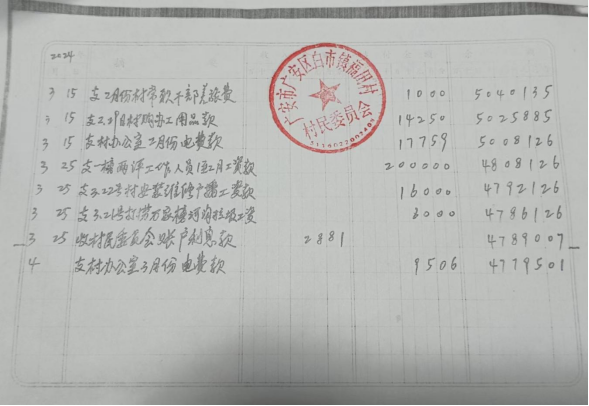 2024
广安市广安区白市镇
村民委员会
3 15 支2月份村常职干部差旅费 1000 5040135
3 15 支 村购办工用品款 14250 5025885
3 15 支村办公室2月份电费款 17759 5008126
3 25 支一 两 工作人员 2月工资款 200000 4808126
3 25 支3.22号村 维修广播工资款 16000 4792126
3 25 支3.21号打捞 河 垃圾工资 6000 4786126
3 25 收村民委员会账户利息款 2881 4789007
4 支村办公室3月份电费款 9506 4779501